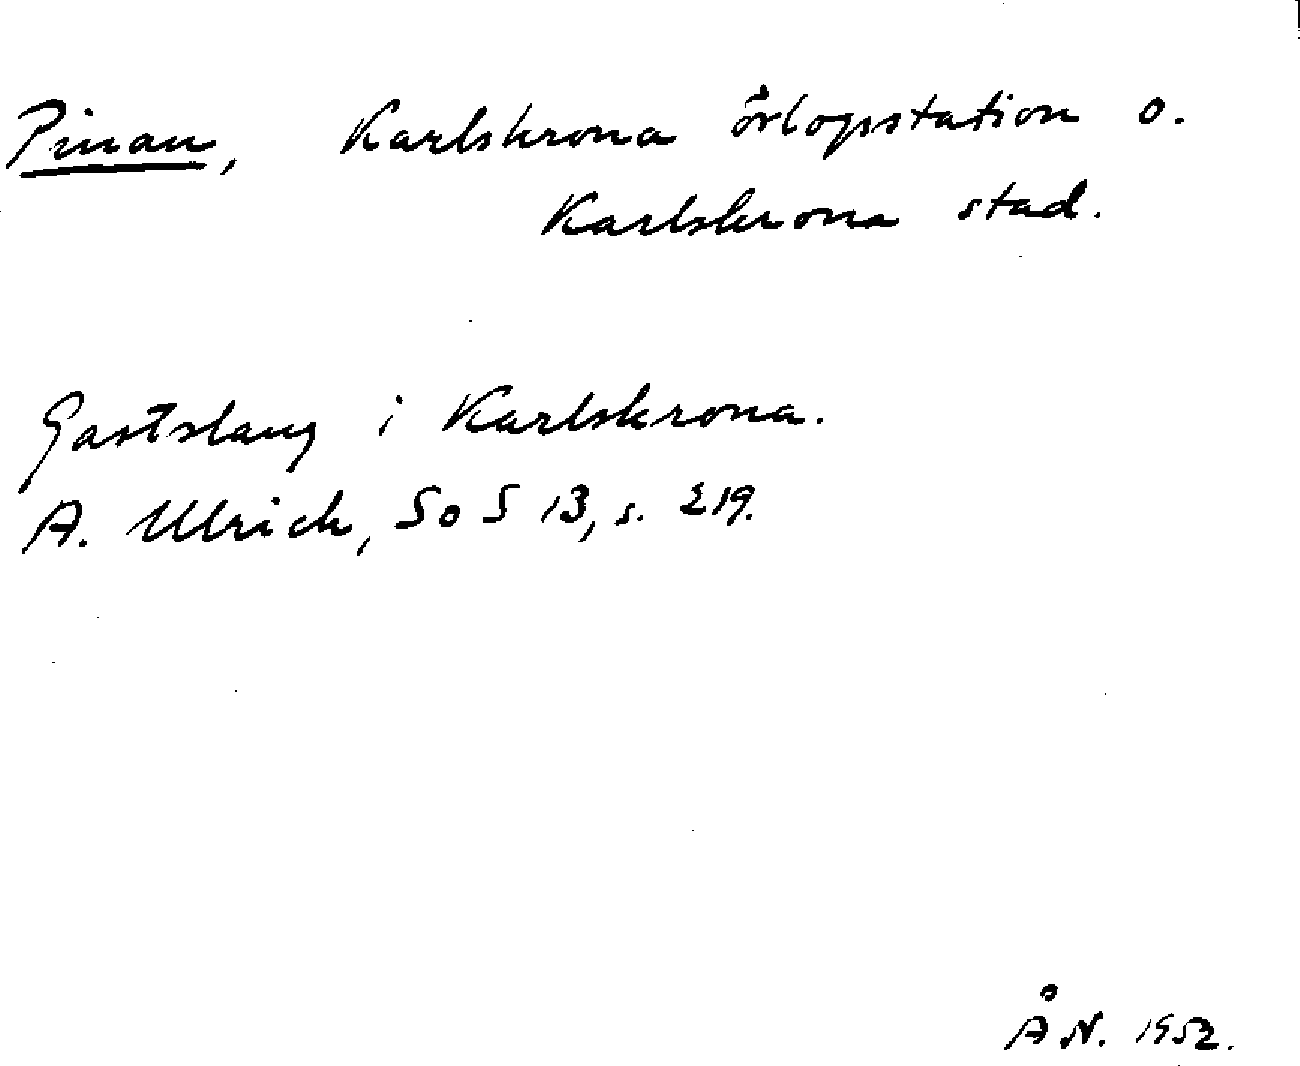 Pinan, Karlskrona örlogsstation o.
Karlskrona stad.
Gastslang i Karlskrona.
A. Ulrich, SoS 13, s. 219.
ÅN. 1952.